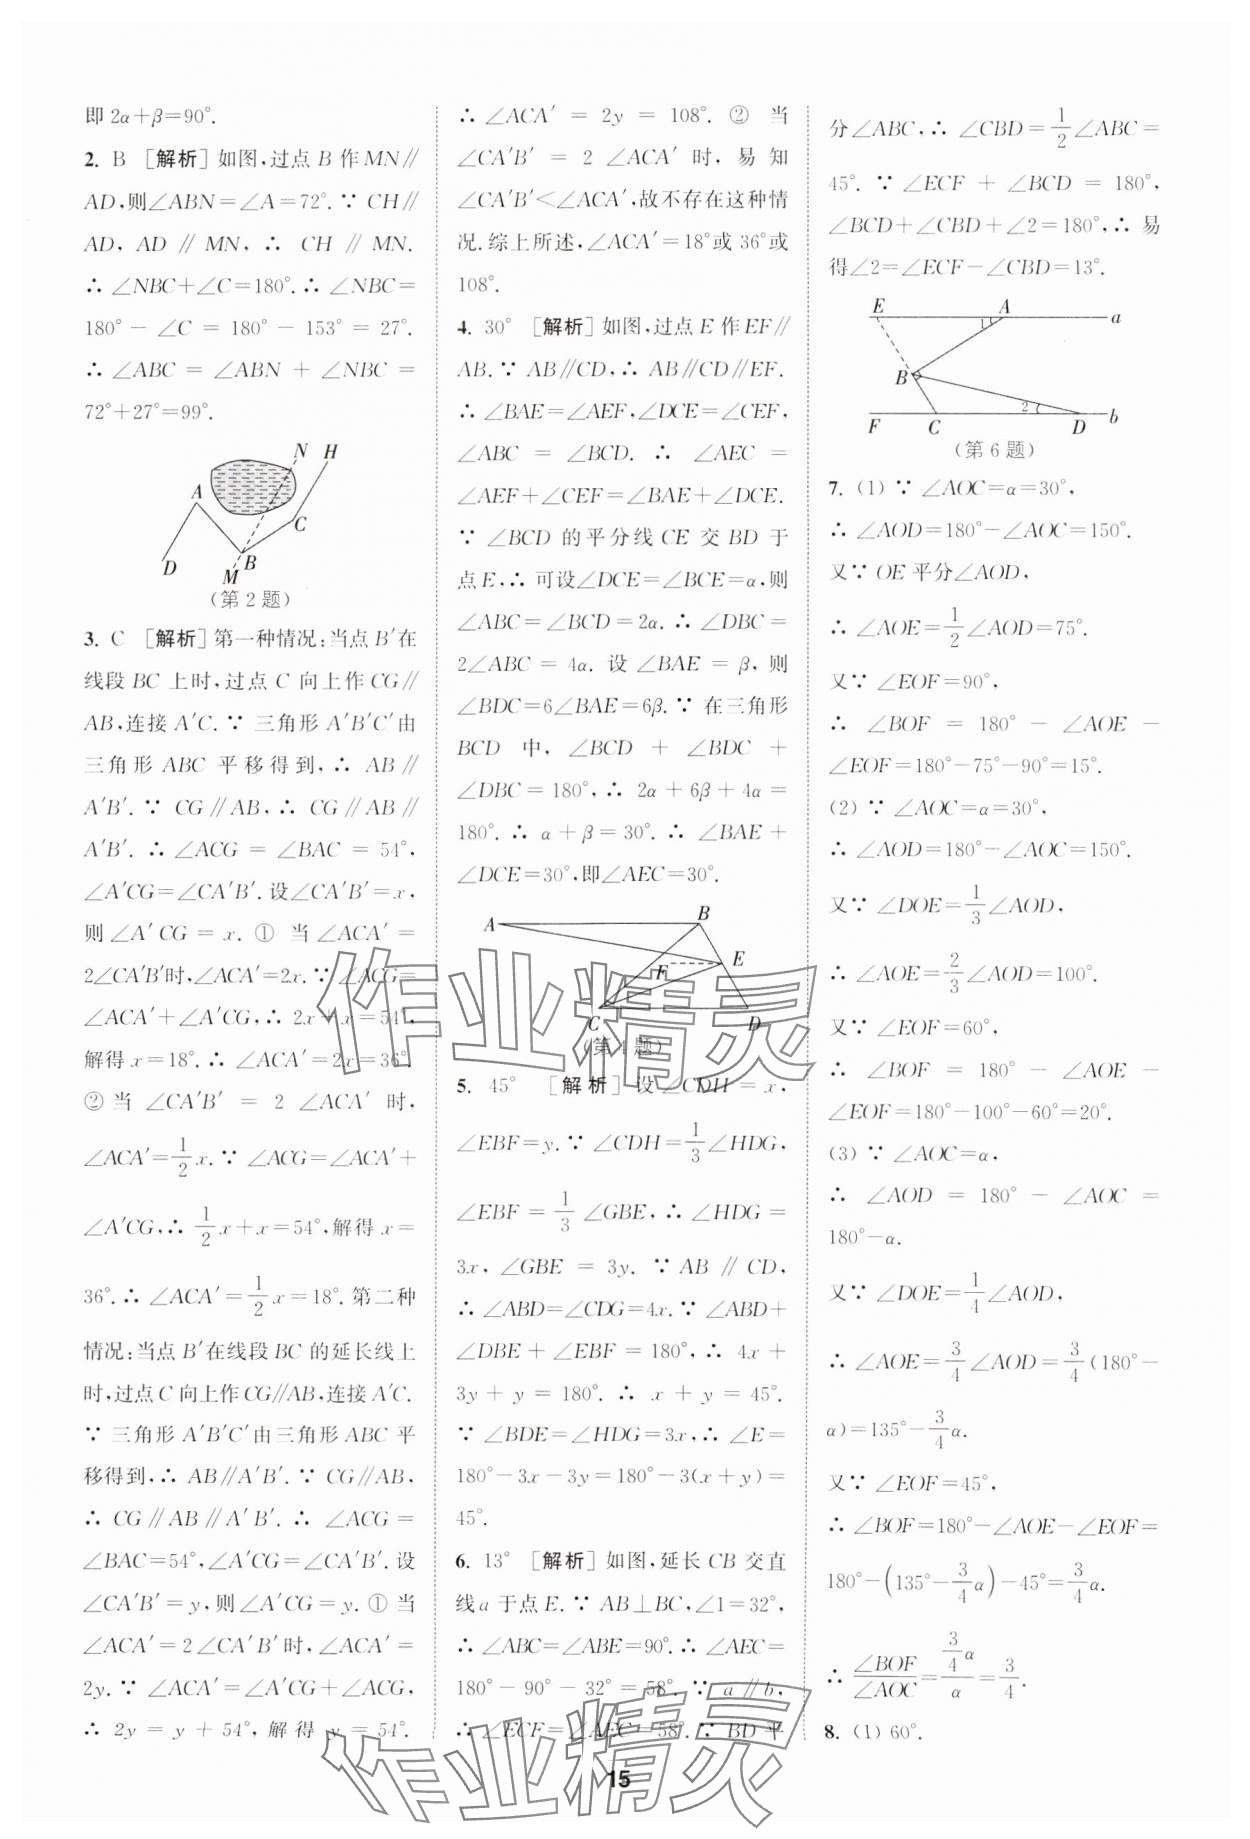 即 2α+β=90°.
2. B [解析]如图,过点 B 作 MN∥
AD,则∠ABN=∠A=72°.∵ CH∥
AD, AD ∥ MN, ∴ CH ∥ MN.
∴ ∠NBC+∠C=180°.∴ ∠NBC=
180°- ∠C = 180°- 153° = 27°.
∴ ∠ABC = ∠ABN + ∠NBC =
72°+27°=99°.
N H
A
C
B
D
M
(第 2 题)
3. C [解析]第一种情况:当点 B′在
线段 BC 上时,过点 C 向上作 CG∥
AB,连接 A′C.∵ 三角形 A′B′C′由
三角形 ABC 平移得到,∴ AB∥
A′B′.∵ CG∥AB,∴ CG∥AB∥
A′B′.∴ ∠ACG = ∠BAC = 54°,
∠A′CG=∠CA′B′.设∠CA′B′=x,
则∠A′CG = x. ① 当∠ACA′ =
2∠CA′B′时,∠ACA′=2x.∵∠ACG=
∠ACA′+∠A′CG,∴ 2x+x=54°,
解得 x=18°.∴ ∠ACA′=2x=36°.
② 当 ∠CA′B′ = 2 ∠ACA′ 时,
∠ACA′=1/2 x.∵ ∠ACG=∠ACA′+
∠A′CG,∴ 1/2 x+x=54°,解得 x=
36°.∴ ∠ACA′=1/2 x=18°.第二种
情况:当点 B′在线段 BC 的延长线上
时,过点 C 向上作 CG∥AB,连接 A′C.
∵ 三角形 A′B′C′由三角形 ABC 平
移得到,∴ AB∥A′B′.∵ CG∥AB,
∴ CG∥AB∥A′B′.∴ ∠ACG =
∠BAC=54°,∠A′CG=∠CA′B′.设
∠CA′B′=y,则∠A′CG=y.① 当
∠ACA′=2∠CA′B′时,∠ACA′=
2y.∵ ∠ACA′=∠A′CG+∠ACG,
∴ 2y = y + 54°,解 得 y = 54°.
∴ ∠ACA′ = 2y = 108°. ② 当
∠CA′B′ = 2 ∠ACA′ 时, 易 知
∠CA′B′<∠ACA′,故不存在这种情
况.综上所述,∠ACA′=18°或 36°或
108°.
4. 30° [解析]如图,过点 E 作 EF∥
AB.∵ AB∥CD,∴ AB∥CD∥EF.
∴ ∠BAE=∠AEF,∠DCE=∠CEF,
∠ABC = ∠BCD. ∴ ∠AEC =
∠AEF+∠CEF=∠BAE+∠DCE.
∵ ∠BCD 的平分线 CE 交 BD 于
点 E,∴ 可设∠DCE=∠BCE=α,则
∠ABC=∠BCD=2α.∴ ∠DBC=
2∠ABC = 4α. 设 ∠BAE = β, 则
∠BDC=6∠BAE=6β.∵ 在三角形
BCD 中, ∠BCD + ∠BDC +
∠DBC = 180°,∴ 2α + 6β + 4α =
180°.∴ α + β = 30°.∴ ∠BAE +
∠DCE=30°,即∠AEC=30°.
A B
E
F
C D
(第 4 题)
5. 45° [解析] 设∠CDH = x,
∠EBF=y.∵ ∠CDH=1/3∠HDG,
∠EBF = 1/3 ∠GBE,∴ ∠HDG =
3x, ∠GBE = 3y. ∵ AB ∥ CD,
∴ ∠ABD=∠CDG=4x.∵ ∠ABD+
∠DBE + ∠EBF = 180°,∴ 4x +
3y + y = 180°. ∴ x + y = 45°.
∵ ∠BDE=∠HDG=3x,∴ ∠E=
180°-3x-3y=180°-3(x+y)=
45°.
6. 13° [解析]如图,延长 CB 交直
线 a 于点 E.∵ AB⊥BC,∠1=32°,
∴ ∠ABC=∠ABE=90°.∴ ∠AEC=
180°- 90°- 32° = 58°.∵ a ∥ b,
∴ ∠ECF=∠AEC=58°.∵ BD 平
分∠ABC,∴ ∠CBD=1/2∠ABC=
45°. ∵ ∠ECF + ∠BCD = 180°,
∠BCD+∠CBD+∠2=180°,∴ 易
得∠2=∠ECF-∠CBD=13°.
E A
1 a
B
2
F C D b
(第 6 题)
7. (1) ∵ ∠AOC=α=30°,
∴ ∠AOD=180°-∠AOC=150°.
又∵ OE 平分∠AOD,
∴ ∠AOE=1/2∠AOD=75°.
又∵ ∠EOF=90°,
∴ ∠BOF = 180° - ∠AOE -
∠EOF=180°-75°-90°=15°.
(2) ∵ ∠AOC=α=30°,
∴ ∠AOD=180°-∠AOC=150°.
又∵ ∠DOE=1/3∠AOD,
∴ ∠AOE=2/3∠AOD=100°.
又∵ ∠EOF=60°,
∴ ∠BOF = 180° - ∠AOE -
∠EOF=180°-100°-60°=20°.
(3) ∵ ∠AOC=α,
∴ ∠AOD = 180° - ∠AOC =
180°-α.
又∵ ∠DOE=1/4∠AOD,
∴ ∠AOE=3/4∠AOD=3/4(180°-
α)=135°-3/4α.
又∵ ∠EOF=45°,
∴ ∠BOF=180°-∠AOE-∠EOF=
180°-(135°-3/4α)-45°=3/4α.
∴ ∠BOF/∠AOC=(3/4α)/α=3/4.
8. (1) 60°.
作业精灵
作业精灵
15